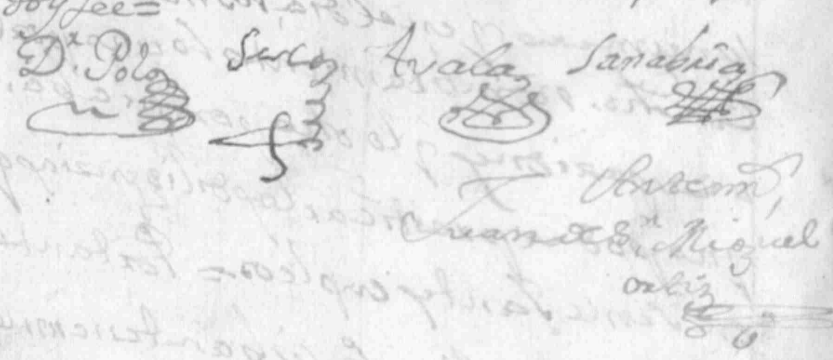 doy fee =
Dr. Polo Ayala Sanabria
Antemi,
Juan de Sn. Miguel
ortiz